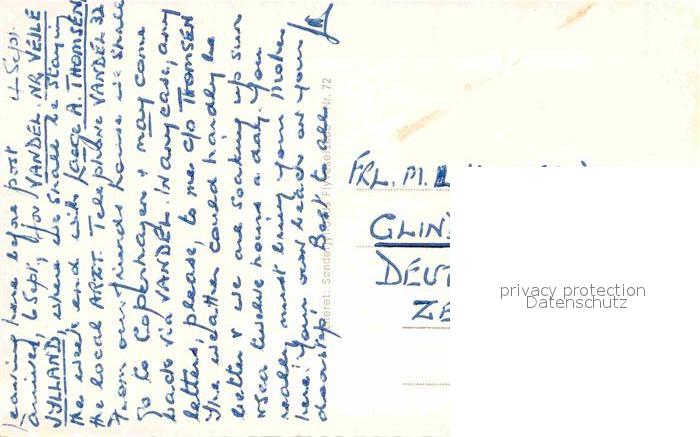 4 Sept.
leaving here before post
arrives, 6 Sept, for VANDEL, NR. VEJLE
JYLLAND, where we shall be staying
the week end with Aage A. THOMSEN
the local ARZT. Telephone VANDEL 32
From our friends house we shall
go to Copenhagen & may come
back via VANDEL. In any case, any
letters, please, to me c/o THOMSEN
The weather could hardly be
better & we are soaking up sun
& sea twelve hours a day. You
really must bring your Mother
here! Your own beach on your
doorstep. Best to all
Eneret: Sønderjyllands Flyveselskab Nr. 72
FRL. M. L
GLIN
DEUT
ZE
privacy protection
Datenschutz